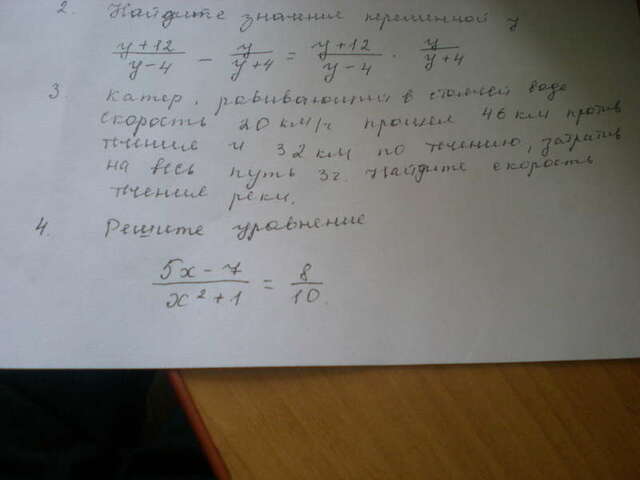 2. Найдите значения переменной y
y+12/y-4 - y/y+4 = y+12/y-4 · y/y+4
3. Катер, развивающий в стоячей воде
скорость 20 км/ч прошел 46 км против
течения и 32 км по течению, затратив
на весь путь 3г. Найдите скорость
течения реки.
4. Решите уравнение
5x-7/x²+1 = 8/10